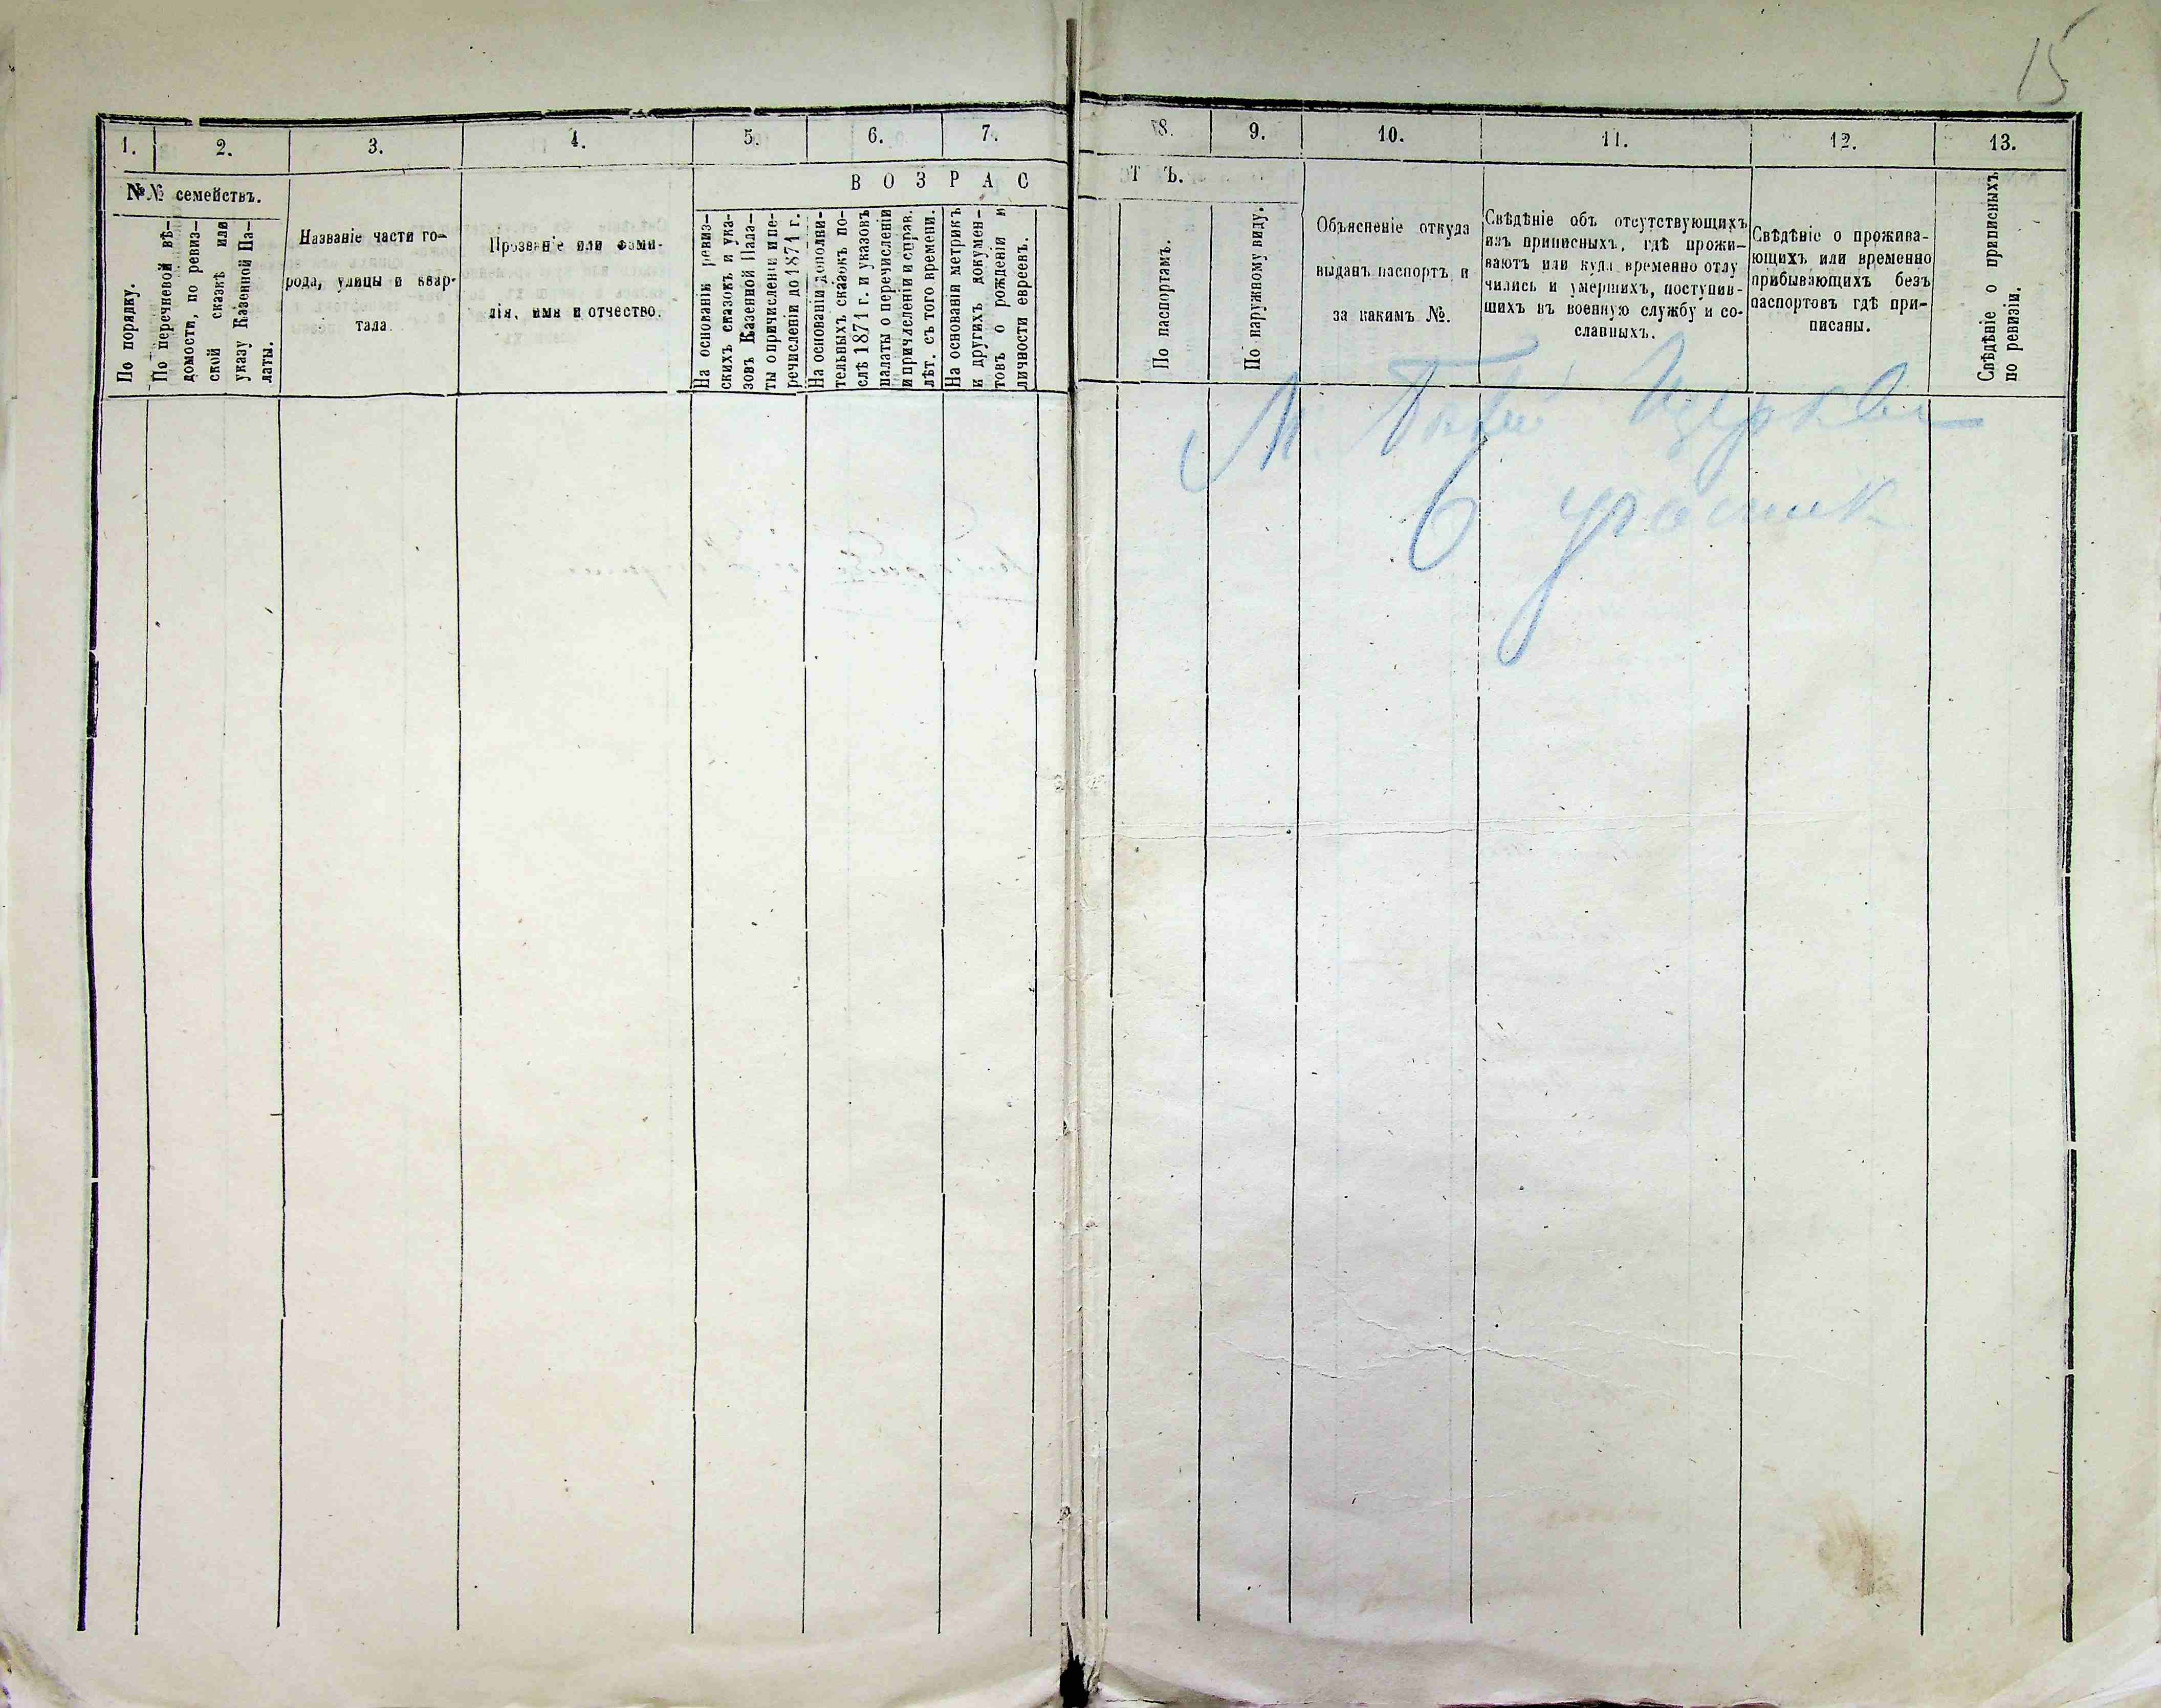 15
1. 2. 3. 4. 5. 6. 7. 8. 9. 10. 11. 12. 13.
№№ семействъ.
По порядку.
По перечневой вѣ-
домости, по ревиз-
ской сказкѣ или
указу Казенной Па-
латы.
Названіе части го-
рода, улицы и квар-
тала.
Прозваніе или фами-
лія, имя и отчество.
ВОЗРАС
ТЪ.
На основаніи ревиз-
скихъ сказокъ и ука-
зовъ Казенной Пала-
ты о причисленіи и пе-
речисленіи до 1871 г.
На основаніи дополни-
тельныхъ сказокъ по-
слѣ 1871 г. и указовъ
палаты о перечисленіи
и причисленіи и справ.
лѣт. съ того времени.
На основаніи метрикъ
и другихъ докумен-
товъ о рожденіи и
личности евреевъ.
По паспортамъ.
По наружному виду.
Объясненіе откуда
выданъ паспортъ и
за какимъ №.
Свѣдѣніе объ отсутствующихъ
изъ приписныхъ, гдѣ прожи-
ваютъ или куда временно отлу
чились и умершихъ, поступив-
шихъ въ военную службу и со-
сланныхъ.
Свѣдѣніе о прожива-
ющихъ или временно
прибывающихъ безъ
паспортовъ гдѣ при-
писаны.
Свѣдѣніе о приписныхъ
по ревизіи.
М. Бѣлой Церкви
6 участк